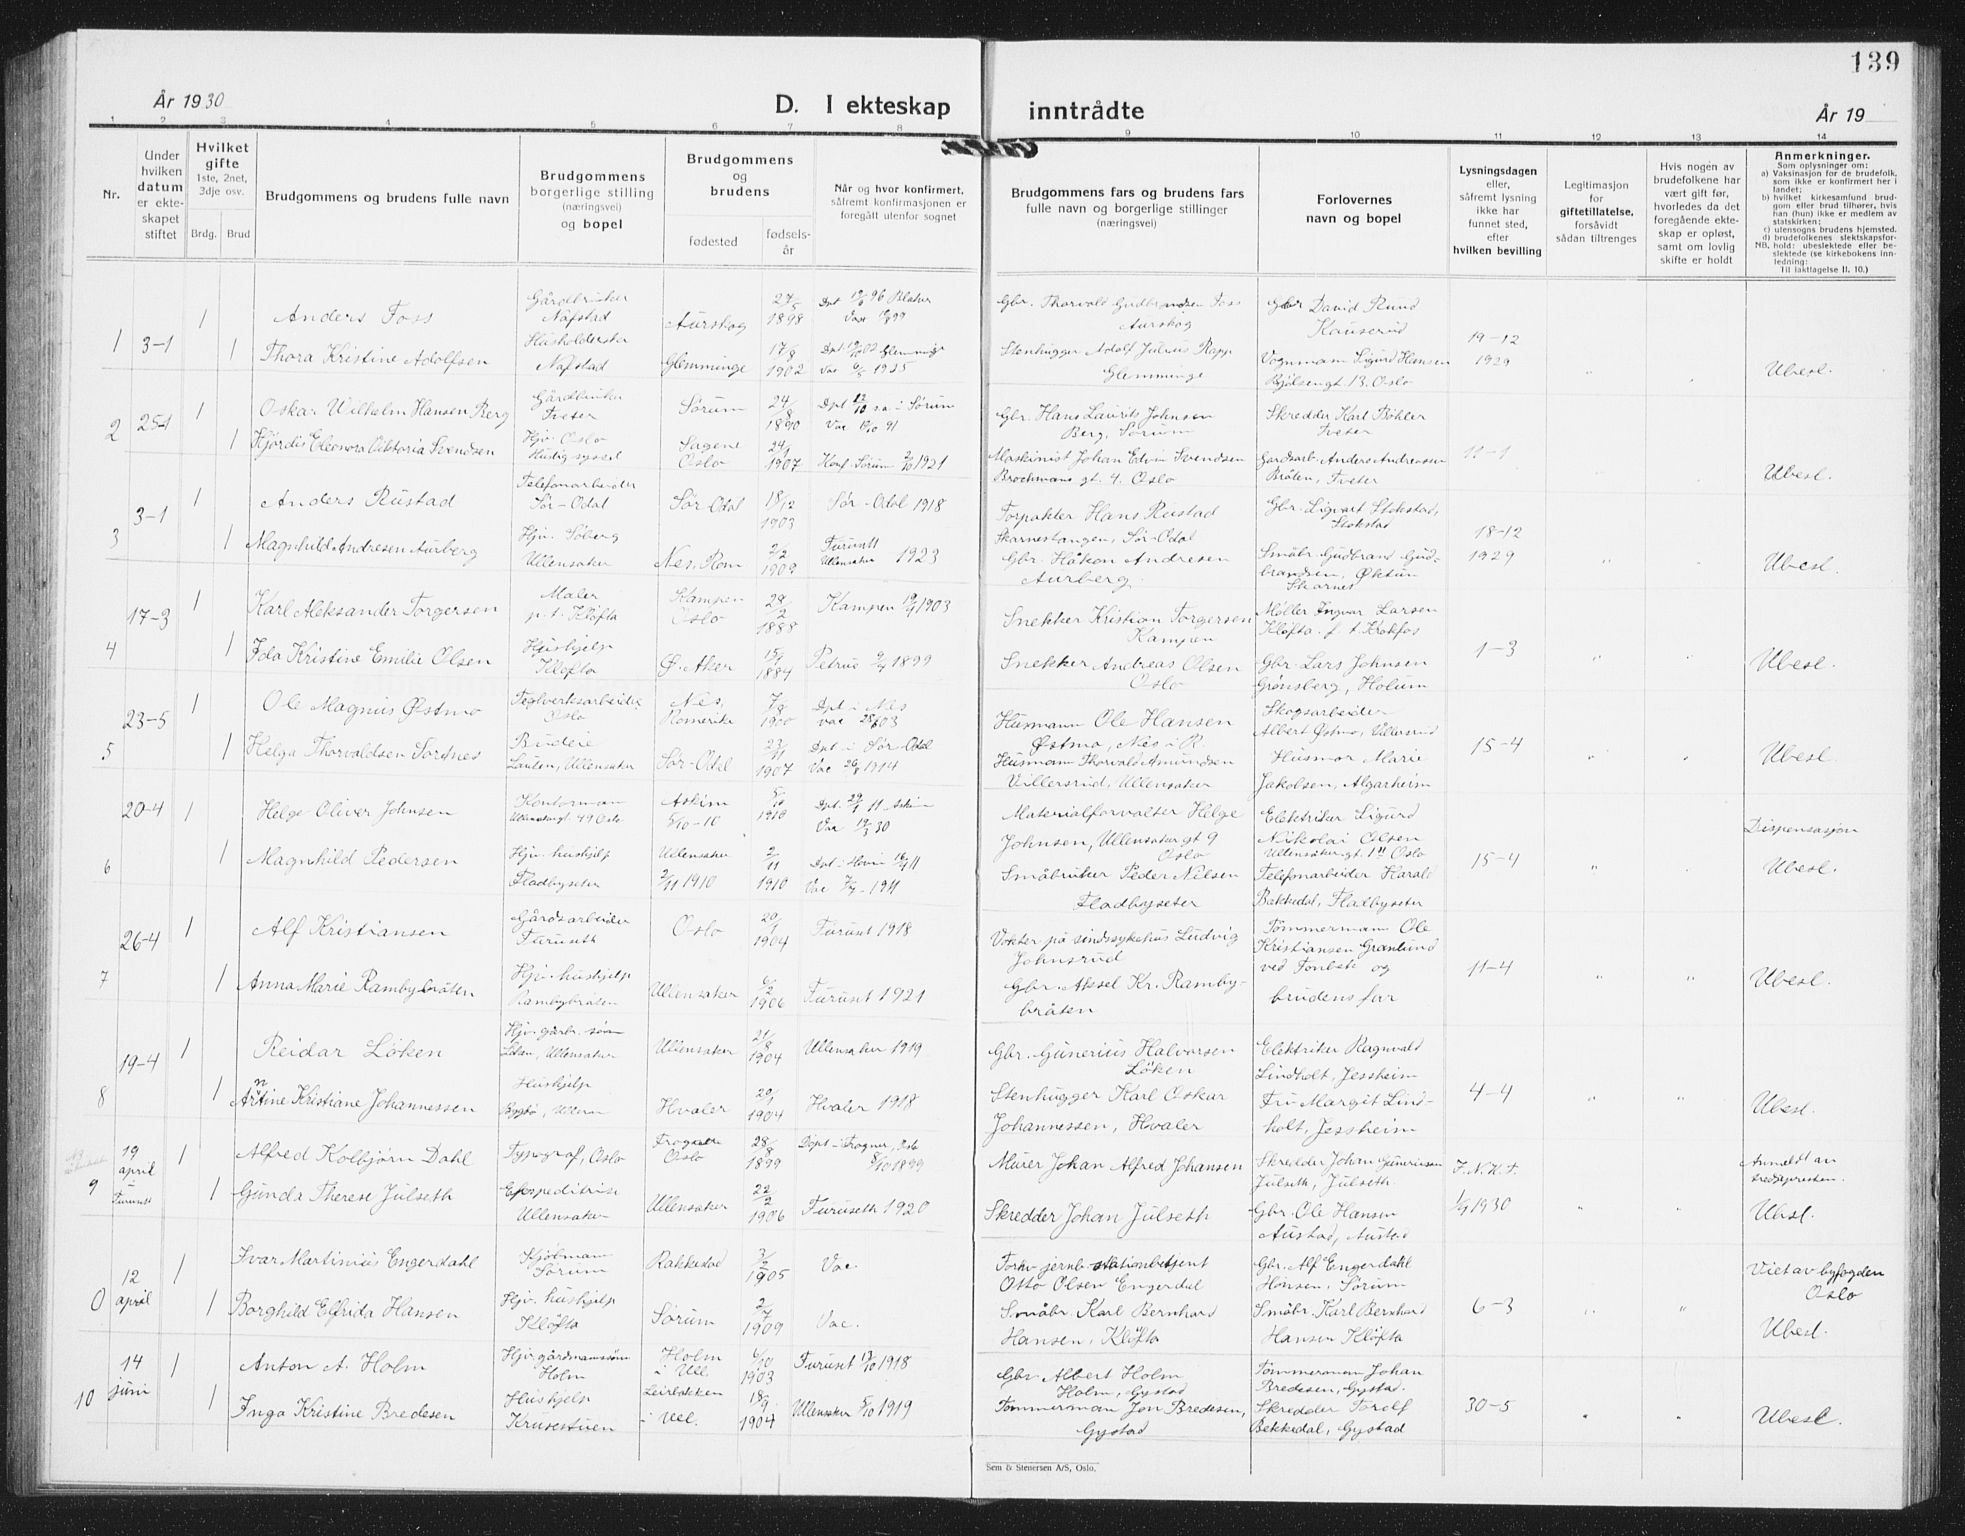 139
År 1930
D. I ekteskap inntrådte
År 19
1 2 3 4 5 6 7 8 9 10 11 12 13 14
Nr.
Under hvilken datum er ekteskapet stiftet
Hvilket gifte 1ste, 2net, 3dje osv.
Brdg. Brud
Brudgommens og brudens fulle navn
Brudgommens borgerlige stilling (næringsvei) og bopel
Brudgommens og brudens
fødested
fødselsår
Når og hvor konfirmert, såfremt konfirmasjonen er foregått utenfor sognet
Brudgommens fars og brudens fars fulle navn og borgerlige stillinger (næringsvei)
Forlovernes navn og bopel
Lysningsdagen eller, såfremt lysning ikke har funnet sted, efter hvilken bevilling
Legitimasjon for giftetillatelse, forsåvidt sådan tiltrenges
Hvis nogen av brudefolkene har vært gift før, hvorledes da det foregående ekteskap er opløst, samt om lovlig skifte er holdt
Anmerkninger.
Som oplysninger om:
a) Vaksinasjon for de brudefolk, som ikke er konfirmert her i landet;
b) hvilket kirkesamfund brudgom eller brud tilhører, hvis han (hun) ikke er medlem av statskirken;
c) utensogns brudens hjemsted.
d) brudefolkenes slektskapsforhold: ubeslektede eller beslektede (se kirkebokens innledning:
NB. Til iakttagelse II. 10.)
1 3-1
1 Anders Foss Gårdbruker Nafstad Aurskog 27/8 1898
Gbr. Thorvald Gudbrandsen Foss Aurskog
Gbr David Ruud Kauserud
1 Thora Kristine Adolfsen Nafstad Glemminge 17/8 1902
Stenhugger Adolf Julius Rapp Glemminge
Vognmann Sigurd Hansen
19-12 1929
Ubesl.
2 25-1
1 Oskar Wilhelm Hansen Berg Gårdbruker Tveter Sørum 24/8 1890
Gbr. Hans Laurits Johnsen Berg, Sørum
Skredder Karl Böhler Tveter
1 Hjördis Eleonora Viktoria Svendsen Hjv. Oslo Huslig syssel Sagene Oslo 24/1 1907 Konf. Sørum 2/10 1921
Maskinist Johan Edvin Svendsen Brochmans gt. 4. Oslo
Gardsarb. Anders Andreassen Bråten, Tveter
11-1
Ubesl.
3 3-1
1 Anders Rustad Telefonarbeider Sør-Odal Sør-Odal 18/12 1903 Sør-Odal 1918
Forpakter Hans Rustad Skarnestangen, Sør-Odal
Gbr. Sigvart Stokstad, Stokstad
1 Magnhild Andresen Aurberg Hjv. Soberg Ullensaker Nes, Rom 2/2 1909 Furusett Ullensaker 1923
Gbr. Håkon Andresen Aurberg.
Småbr. Gudbrand Gudbrandsen, Skarnes
18-12 1929
Ubesl.
4 17-3
1 Karl Aleksander Torgersen Maler p.t. Kløfta Kampen Oslo 28/2 1888 Kampen 19/4 1903
Snekker Kristian Torgersen Kampen
Møller Ingvar Larsen Kløfta
1 Ida Kristine Emilie Olsen Hushjelp Kløfta Ø. Aker 15/1 1884 Petrus 9/4 1899
Snekker Andreas Olsen Oslo
Gbr. Lars Johnsen Grønsberg, Holum
1-3
Ubesl.
5 23-5
1 Ole Magnus Østmo Teglverksarbeider Oslo Nes, Romerike 7/8 1900 Døpt i Nes
Husmann Ole Hansen Østmo, Nes i R.
Skogsarbeider Albert Østmo, Villersrud
1 Helga Thorvaldsen Sordnes Budeie Lauten, Ullensaker Sør-Odal 23/11 1907 Dpt i Sør-Odal
Husmann Thorvald Amundsen Villersrud, Ullensaker
Husmor Marie Jakobsen, Algarheim
15-4
Ubesl.
6 20-4
1 Helge Oliver Johnsen Kontormann Ullensakergt 49 Oslo Askim 5/10-10 5/10 1910 Dpt. 29/1 11 Askim Vac 19/3 30
Materialforvalter Helge Johnsen, Ullensaker gt 9 Oslo
Elektriker Sigurd Nikolai Olsen Ullensakergt. Oslo
Dispensasjon
1 Magnhild Pedersen Hjv. hushjelp Fladbyseter Ullensaker 2/11 1910 2/11 1910 Dpt i Hovin Vac 7/7-1911
Småbruker Peder Nilsen Fladbyseter
Telefonarbeider Harald Bakkedal, Fladbyseter
15-4
Ubesl.
7 26-4
1 Alf Kristiansen Gårdsarbeider Furuseth Oslo 20/1 1904 Furuset 1918
Vokter på sindssykehus Ludvig Johnsrud
Tømmermann Ole Kristiansen Granlund ved Tonbek og brudens far
1 Anna Marie Rambybråten Hjv. hushjelp Rambybråten Ullensaker 6/2 1906 Furuset 1921
Gbr. Aksel Kr. Rambybråten
11-4
Ubesl.
8 19-4
1 Reidar Løken Hjv. gårbr. sønn Løken, Ullensaker Ullensaker 21/8 1904 Ullensaker 1919
Gbr. Gunerius Halvorsen Løken
Elektriker Ragnvald Lindholt, Jessheim
1 Kristiane Johannessen Hushjelp Hvaler 20/1 1904 Hvaler 1918
Stenhugger Karl Oskar Johannessen, Hvaler
Fru Margit Lindholt, Jessheim
4-4
Ubesl.
9 19 april i Furusett
1 Alfred Kolbjørn Dahl Typograf, Oslo Frogner Oslo 28/8 1899 Døpt i Frogner, Oslo 8/10 1899
Murer Johan Alfred Johansen
Skredder Johan Gunerinsen Julseth, Julseth
F.N.K.F.
1 Gunda Therese Julseth Ekspeditrise Ullensaker Ullensaker 22/2 1906 Furuseth 1920
Skredder Johan Julseth
Gbr. Ole Hansen Austad, Austad
1/4 1930
Ubesl.
0 12 april
1 Ivar Martinius Engerdahl Kjøbmann Sørum Rakkestad 3/2 1905 Vac.
Forhv jernb. stationbetjent Otto Olsen Engerdal
Gbr. Alf Engerdahl Hønsen, Sørum
Viet av byfogden Oslo
1 Borghild Elfrida Hansen Hjv. hushjelp Kløfta Sørum 2/7 1909 Vac.
Småbr. Karl Bernhard Hansen, Kløfta
Småbr. Karl Bernhard Hansen Kløfta
6-3
Ubesl.
10 14 juni
1 Anton A. Holm Hjv. gårdmannssønn Holm Holm i Ull 6/10 1903 Furuset 13/10 1918
Gbr Albert Holm Holm, Gystad
Tømmermann Johan Bredesen, Gystad.
1 Inga Kristine Bredesen Hushjelp Krusestuen Leirbakken i Ull. 18/9 1904 Ullensaker 5/10 1919
Tømmermann Jon Bredesen, Gystad
Skredder Torolf Bekkedal, Gystad
30-5
Ubesl.
Sem & Stenersen A/S, Oslo.